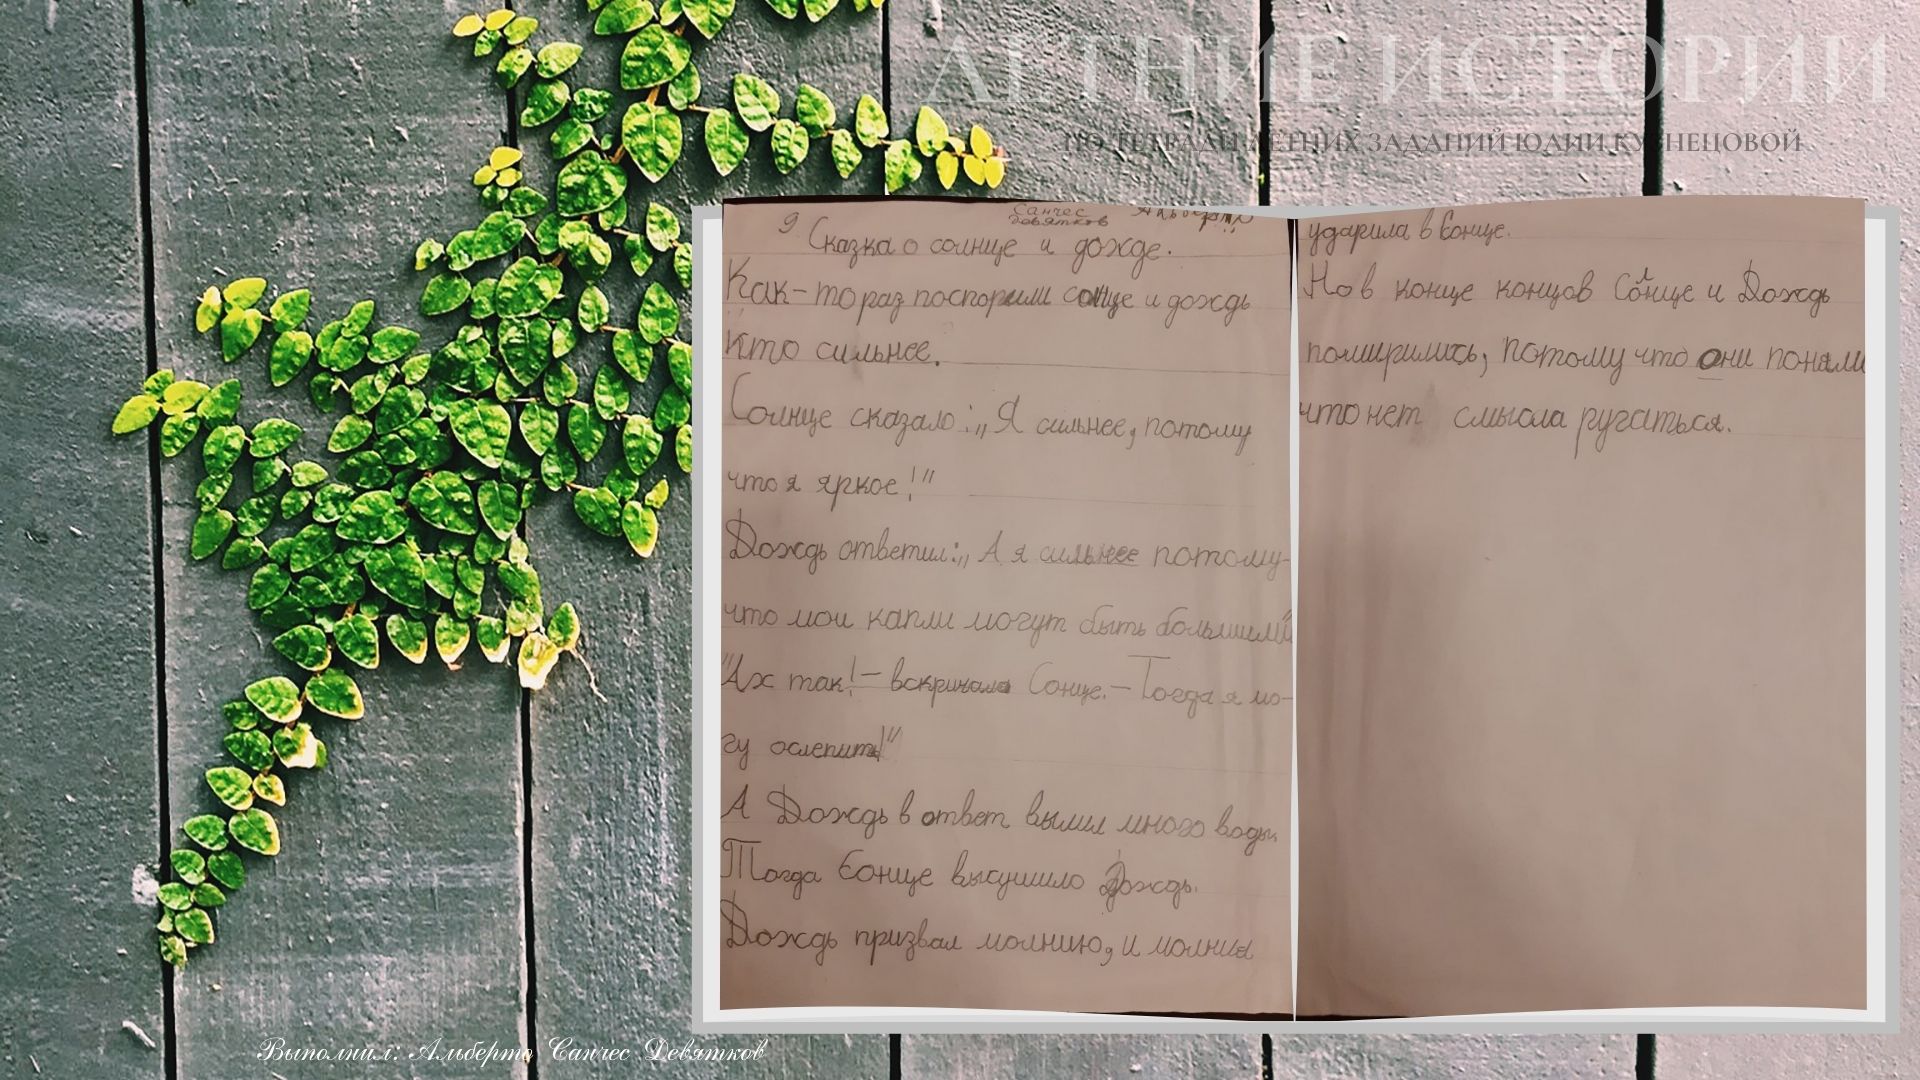 ЛЕТНИЕ ИСТОРИИ
ПО ТЕТРАДИ ЛЕТНИХ ЗАДАНИЙ ЮЛИИ КУЗНЕЦОВОЙ
Санчес Альберто
Девятков
9 Сказка о солнце и дожде.
Как-то раз поспорили сонце и дождь
кто сильнее.
Солнце сказало: „Я сильнее, потому
что я яркое!"
Дождь ответил: „А я сильнее потому-
что мои капли могут быть большими"
"Ах так! – вскричало Сонце. – Тогда я мо-
гу ослепить!"
А Дождь в ответ вылил много воды.
Тогда Сонце высушило Дождь.
Дождь призвал молнию, и молния
ударила в Сонце.
Но в конце концов Солнце и Дождь
помирились, потому что они поняли
что нет смысла ругаться.
Выполнил: Альберто Санчес Девятков